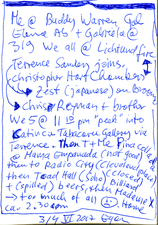 Me @ Buddy Warren Gal
Elena AS + Gabriela @
319 we all @ Lichtundfire
Terence Sanders joins,
christopher Hart Chambers
→ Zest (japanese) on Broome
Chris Royman + brother
We 5 @ 11 15 pm "peak" into
Catinca Tabacaru Gallery via
Terence. Then T+Me Pina colada
@ Havsa Empanada (not good)
then to Radio City (Cleveland place)
then Toad Hall (Soho) closed
+ (spilled) beers, then Billiard
→ too much of all
ca. 2.30 am Home
3/4 VI 2017